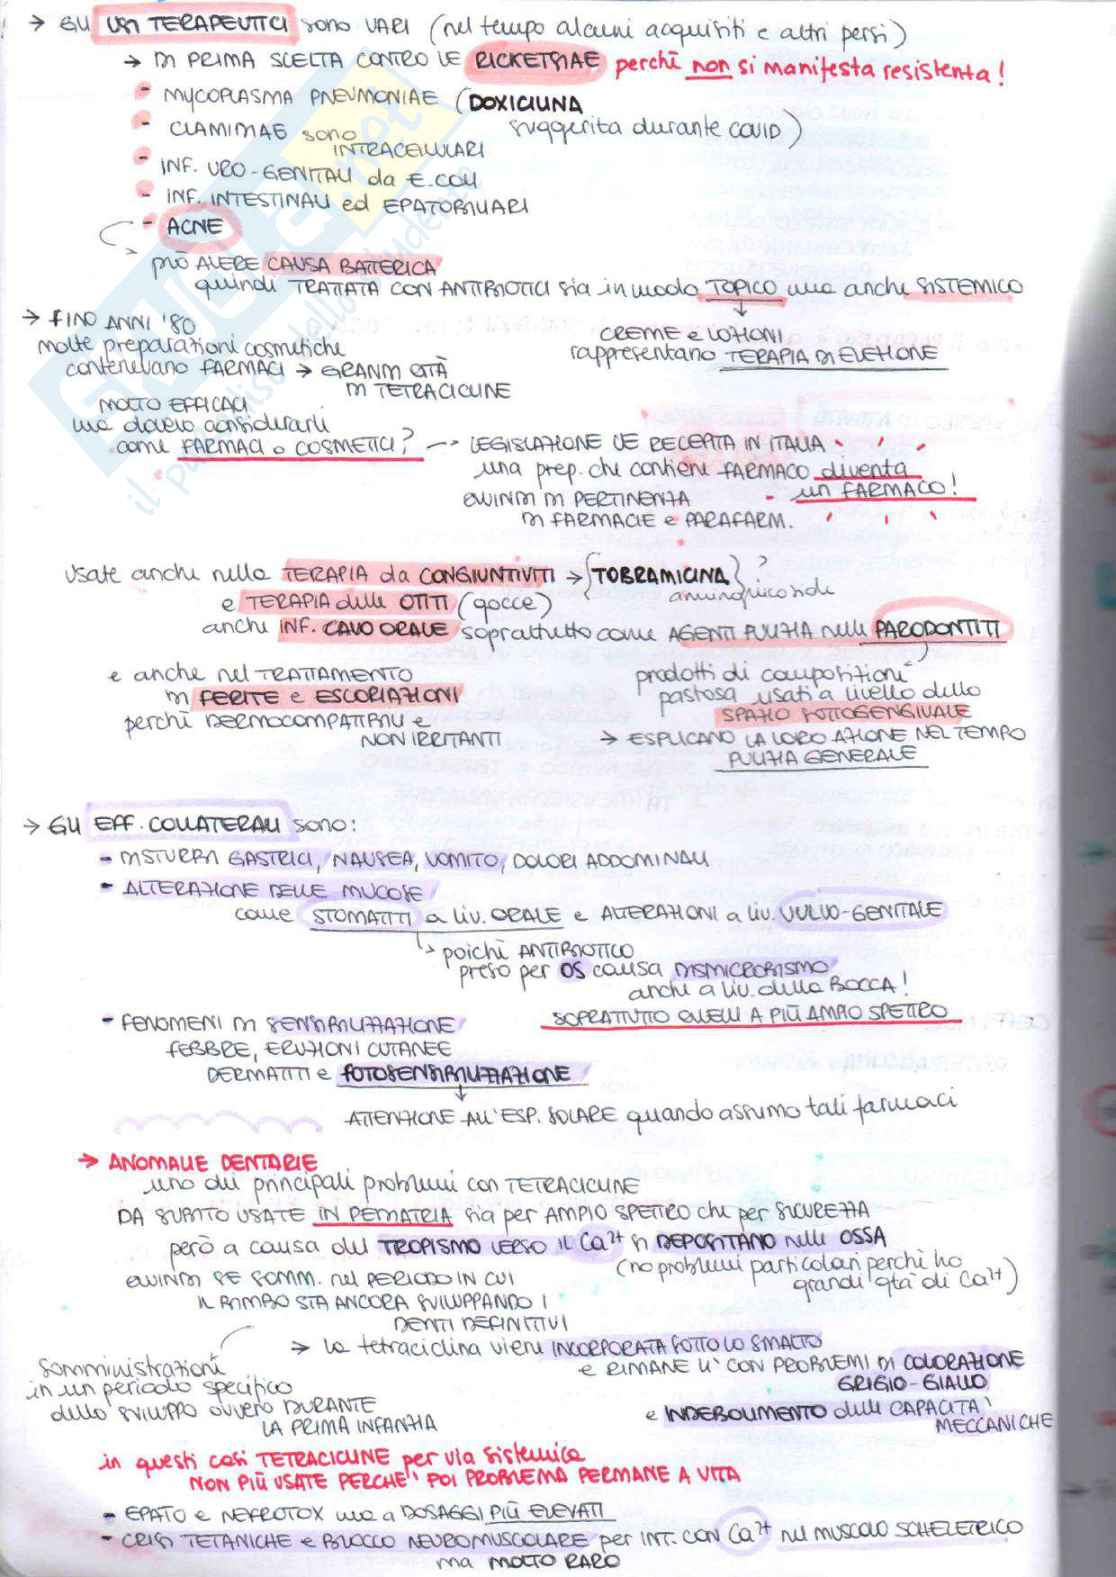 → GLI USI TERAPEUTICI sono VARI (nel tempo alcuni acquisiti e altri persi)
→ DI PRIMA SCELTA CONTRO LE RICKETSIAE perchè non si manifesta resistenza!
- MYCOPLASMA PNEUMONIAE (DOXICILINA
suggerita durante COVID)
- CLAMIDIAE sono
INTRACELLULARI
- INF. URO-GENITALI da E.COLI
- INF. INTESTINALI ed EPATOBILIARI
- ACNE
può AVERE CAUSA BATTERICA
quindi TRATTATA CON ANTIBIOTICI sia in modo TOPICO ma anche SISTEMICO
CREME e LOZIONI
rappresentano TERAPIA DI ELEZIONE
→ FINO ANNI '80
molte preparazioni cosmetiche
contenevano FARMACI → GRANDI QTÀ
DI TETRACICLINE
MOLTO EFFICACI
ma dovevo considerarli
come FARMACI o COSMETICI? → LEGISLAZIONE UE RECEPITA IN ITALIA
una prep. che contiene FARMACO diventa
un FARMACO!
QUINDI DI PERTINENZA
DI FARMACIE e PARAFARM.
Usate anche nella TERAPIA da CONGIUNTIVITI → {TOBRAMICINA} ?
aminoglicoside
e TERAPIA delle OTITI (gocce)
anche INF. CAVO ORALE soprattutto come AGENTI PULIZIA nelle PARODONTITI
prodotti di composizione
pastosa usati a livello dello
SPAZIO SOTTOGENGIVALE
→ ESPLICANO LA LORO AZIONE NEL TEMPO
PULIZIA GENERALE
e anche nel TRATTAMENTO
DI FERITE e ESCORIAZIONI
perchè DERMOCOMPATIBILI e
NON IRRITANTI
→ GLI EFF. COLLATERALI sono:
- DISTURBI GASTRICI, NAUSEA, VOMITO, DOLORI ADDOMINALI
- ALTERAZIONE DELLE MUCOSE
come STOMATITI a liv. ORALE e ALTERAZIONI a liv. VULVO-GENITALE
→ poichè ANTIBIOTICO
preso per OS causa DISMICROBISMO
anche a liv. della BOCCA!
SOPRATTUTTO QUELLI A PIÙ AMPIO SPETTRO
- FENOMENI DI SENSIBILIZZAZIONE
FEBBRE, ERUZIONI CUTANEE
DERMATITI e FOTOSENSIBILIZZAZIONE
ATTENZIONE ALL'ESP. SOLARE quando assumo tali farmaci
→ ANOMALIE DENTARIE
uno dei principali problemi con TETRACICLINE
DA SUBITO USATE IN PEDIATRIA sia per AMPIO SPETTRO che per SICUREZZA
però a causa del TROPISMO VERSO IL Ca²⁺ si DEPOSITANO nelle OSSA
(no problemi particolari perchè ho
grandi qtà di Ca²⁺)
QUINDI SE SOMM. nel PERIODO IN CUI
IL BIMBO STA ANCORA SVILUPPANDO I
DENTI DEFINITIVI
→ la tetraciclina viene INCORPORATA SOTTO LO SMALTO
e RIMANE LI' CON PROBLEMI DI COLORAZIONE
GRIGIO-GIALLO
e INDEBOLIMENTO delle CAPACITA'
MECCANICHE
somministrazioni
in un periodo specifico
dello SVILUPPO ovvero DURANTE
LA PRIMA INFANZIA
in questi casi TETRACICLINE per via sistemica
NON PIÙ USATE PERCHE' POI PROBLEMA PERMANE A VITA
- EPATO e NEFROTOX ma a DOSAGGI PIÙ ELEVATI
- CRISI TETANICHE e BLOCCO NEUROMUSCOLARE per INT. CON Ca²⁺ nel MUSCOLO SCHELETRICO
ma MOLTO RARO